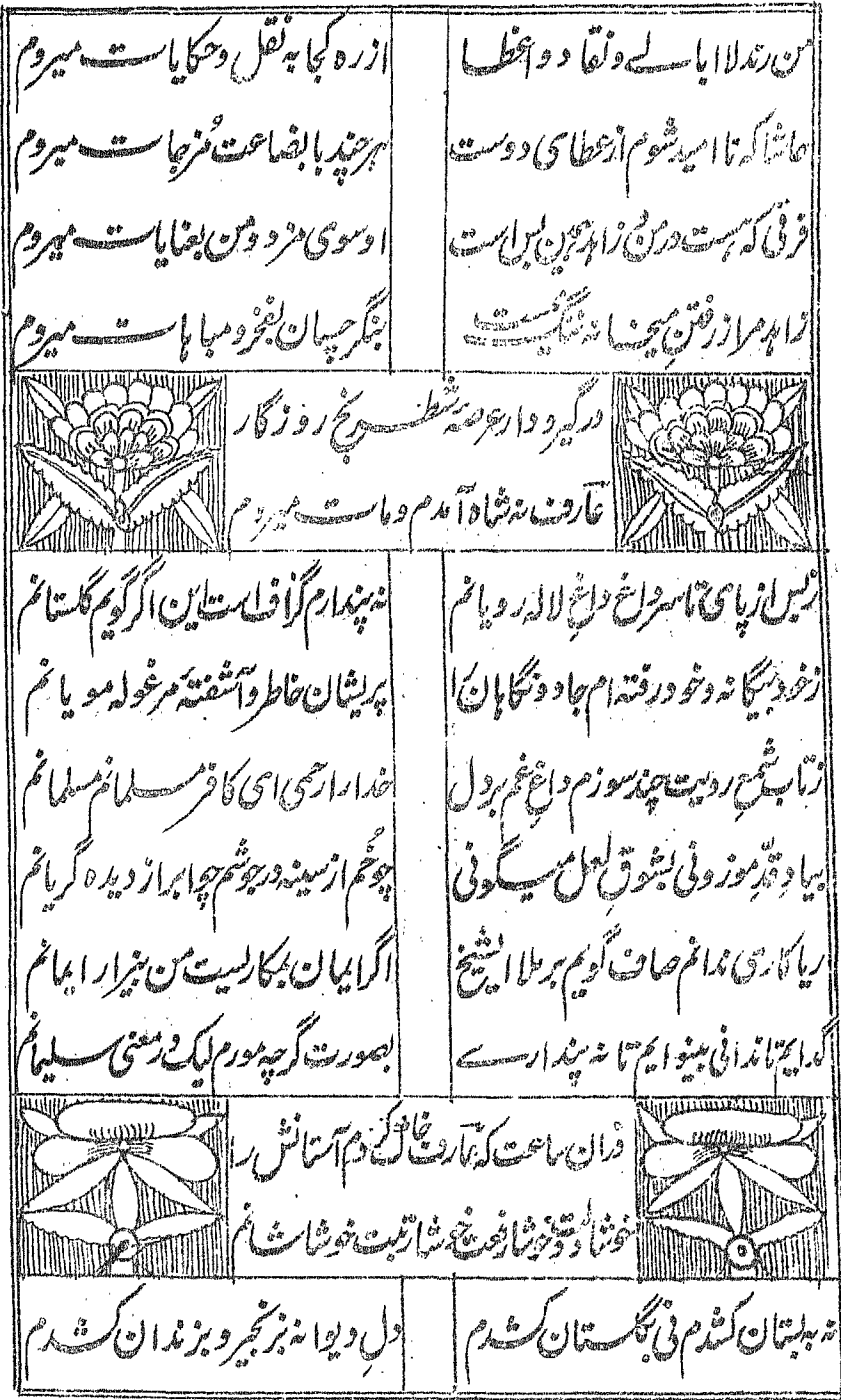 من رند لاابالے و نقاد و اعظا از ره کجا به نقل و حکایات میروم
حاشا که نا امید شوم از عطای دوست هر چند با بضاعت مُزجات میروم
فرقی که هست در من و زاهد همین بس است او سوی مزد و من بعنایات میروم
زاهد مرا ز رفتنِ میخانه ننگ نیست بنگر چسان بفخر و مباهات میروم
در گیر و دار عرصهٔ شطرنج روزگار
عارف نه شاه آمدم و مات میروم
ز بس از پای تا سر داغ داغِ لاله رویانم نه پندارم گزاف است این اگر گویم گلستانم
ز خود بیگانه و خود رفته ام جادو نگاهان را پریشان خاطر و آشفتهٔ مرغوله مویانم
ز تاب شمعِ رویت چند سوزم داغِ غم بر دل خدا را رحمی ای کافر مسلمانم مسلمانم
بیادِ قدِّ موزونی بشوقِ لعل میگونی چو خُم از سینه در جوشم چو ابر از دیده گریانم
ریاکاری ندانم صاف گویم بر ملا ایشیخ اگر ایمان بمکاریست من بیزار ایمانم
گدایم تا ندانی بینوایم تا نه پندارے بصورت گرچه مورم لیک در معنی سلیمانم
دران ساعت که عارف خاک گردم آستانش را
خوشا خوشا رفعت خوشا رتبت خوشا شانم
نه به بستان کشدم نی بگلستان کشدم دلِ دیوانه بزنجیر و بزندان کشدم